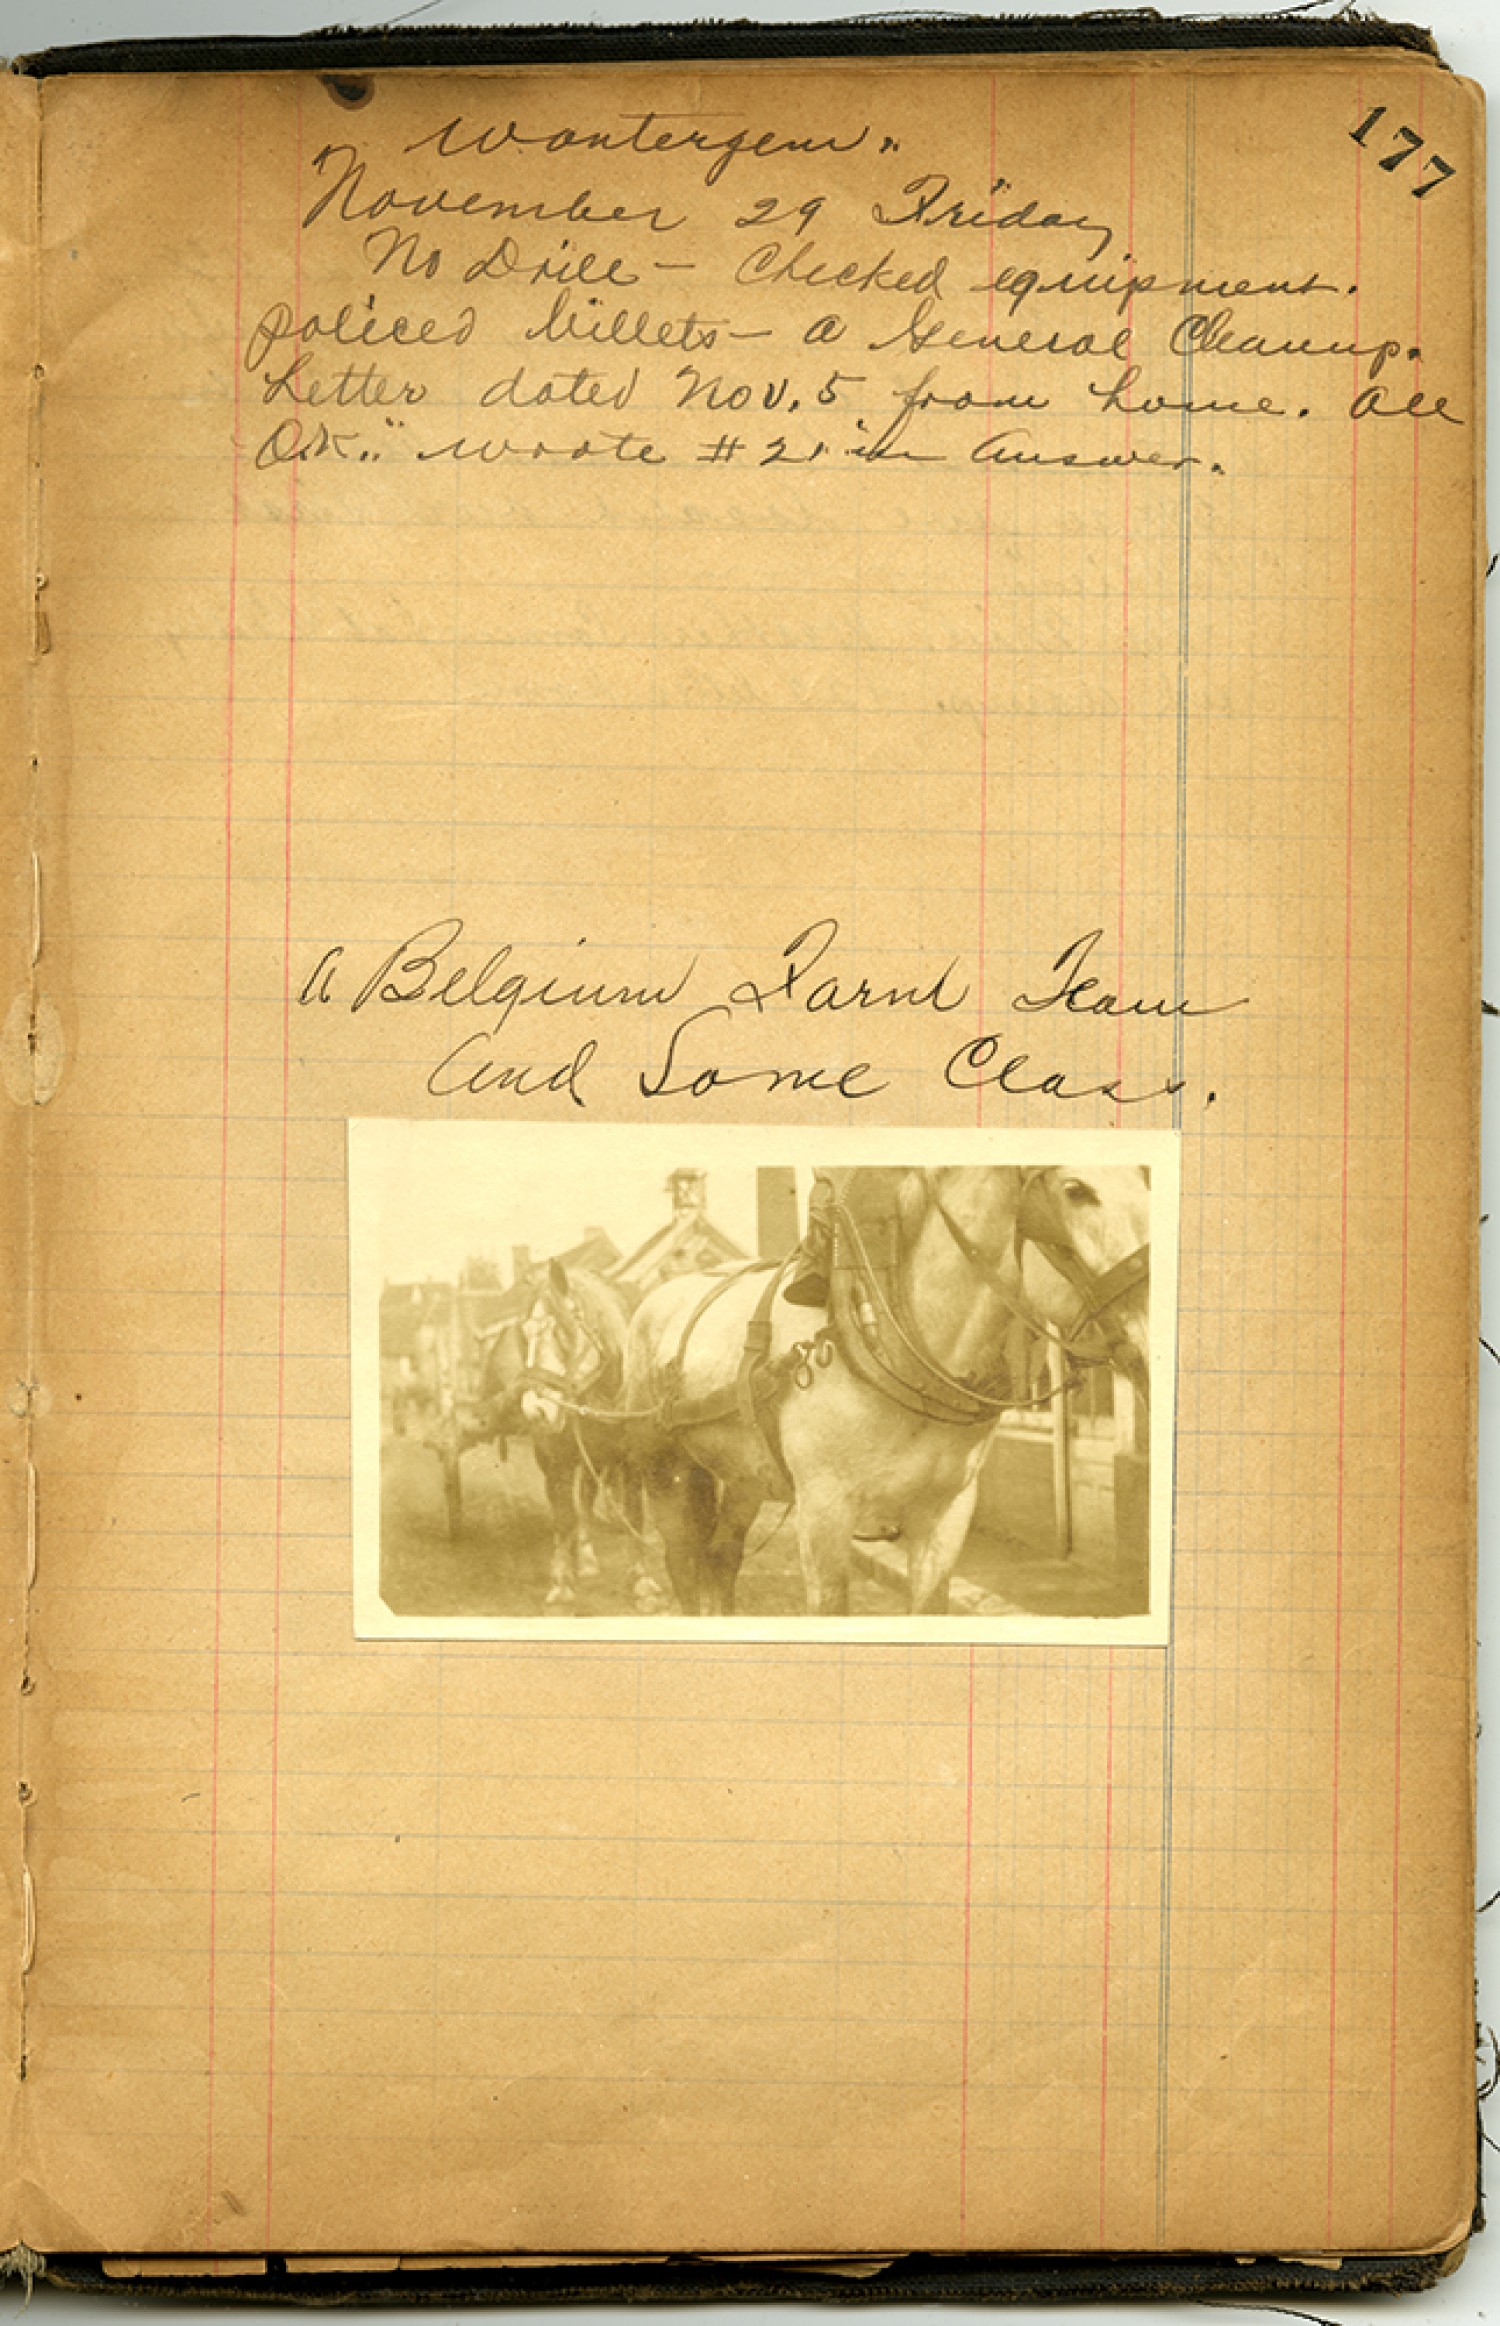 177
Wontergem.
November 29 Friday
No Drill - Checked equipment.
policed billets - a General Cleanup.
Letter dated Nov. 5 from home. All
OK.. wrote #21 in answer.
A Belgium Farm Team
And Some Class.